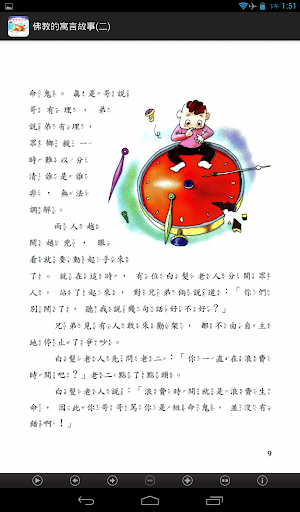 下午 1:51
佛教的寓言故事(二)
命鬼。真是哥說
哥有理,弟
說弟有理,
眾鄉親一
時難以分
清誰是誰
非,無法
調解。
兩人越
鬧越兇,眼
看就要動起手來
了。就在這時,有位白髮老人分開眾
人,站了起來,對兄弟倆說道:「你們
別鬧了,聽我說幾句話好不好?」
兄弟見有人敢來勸架,都不由自主
地停止了爭吵。
白髮老人先問老二:「你一直在浪費
時間吧?」老二點了點頭。
白髮老人說:「浪費時間就是浪費生
命,因此你哥哥罵你是短命鬼,並沒有
錯啊!」
9